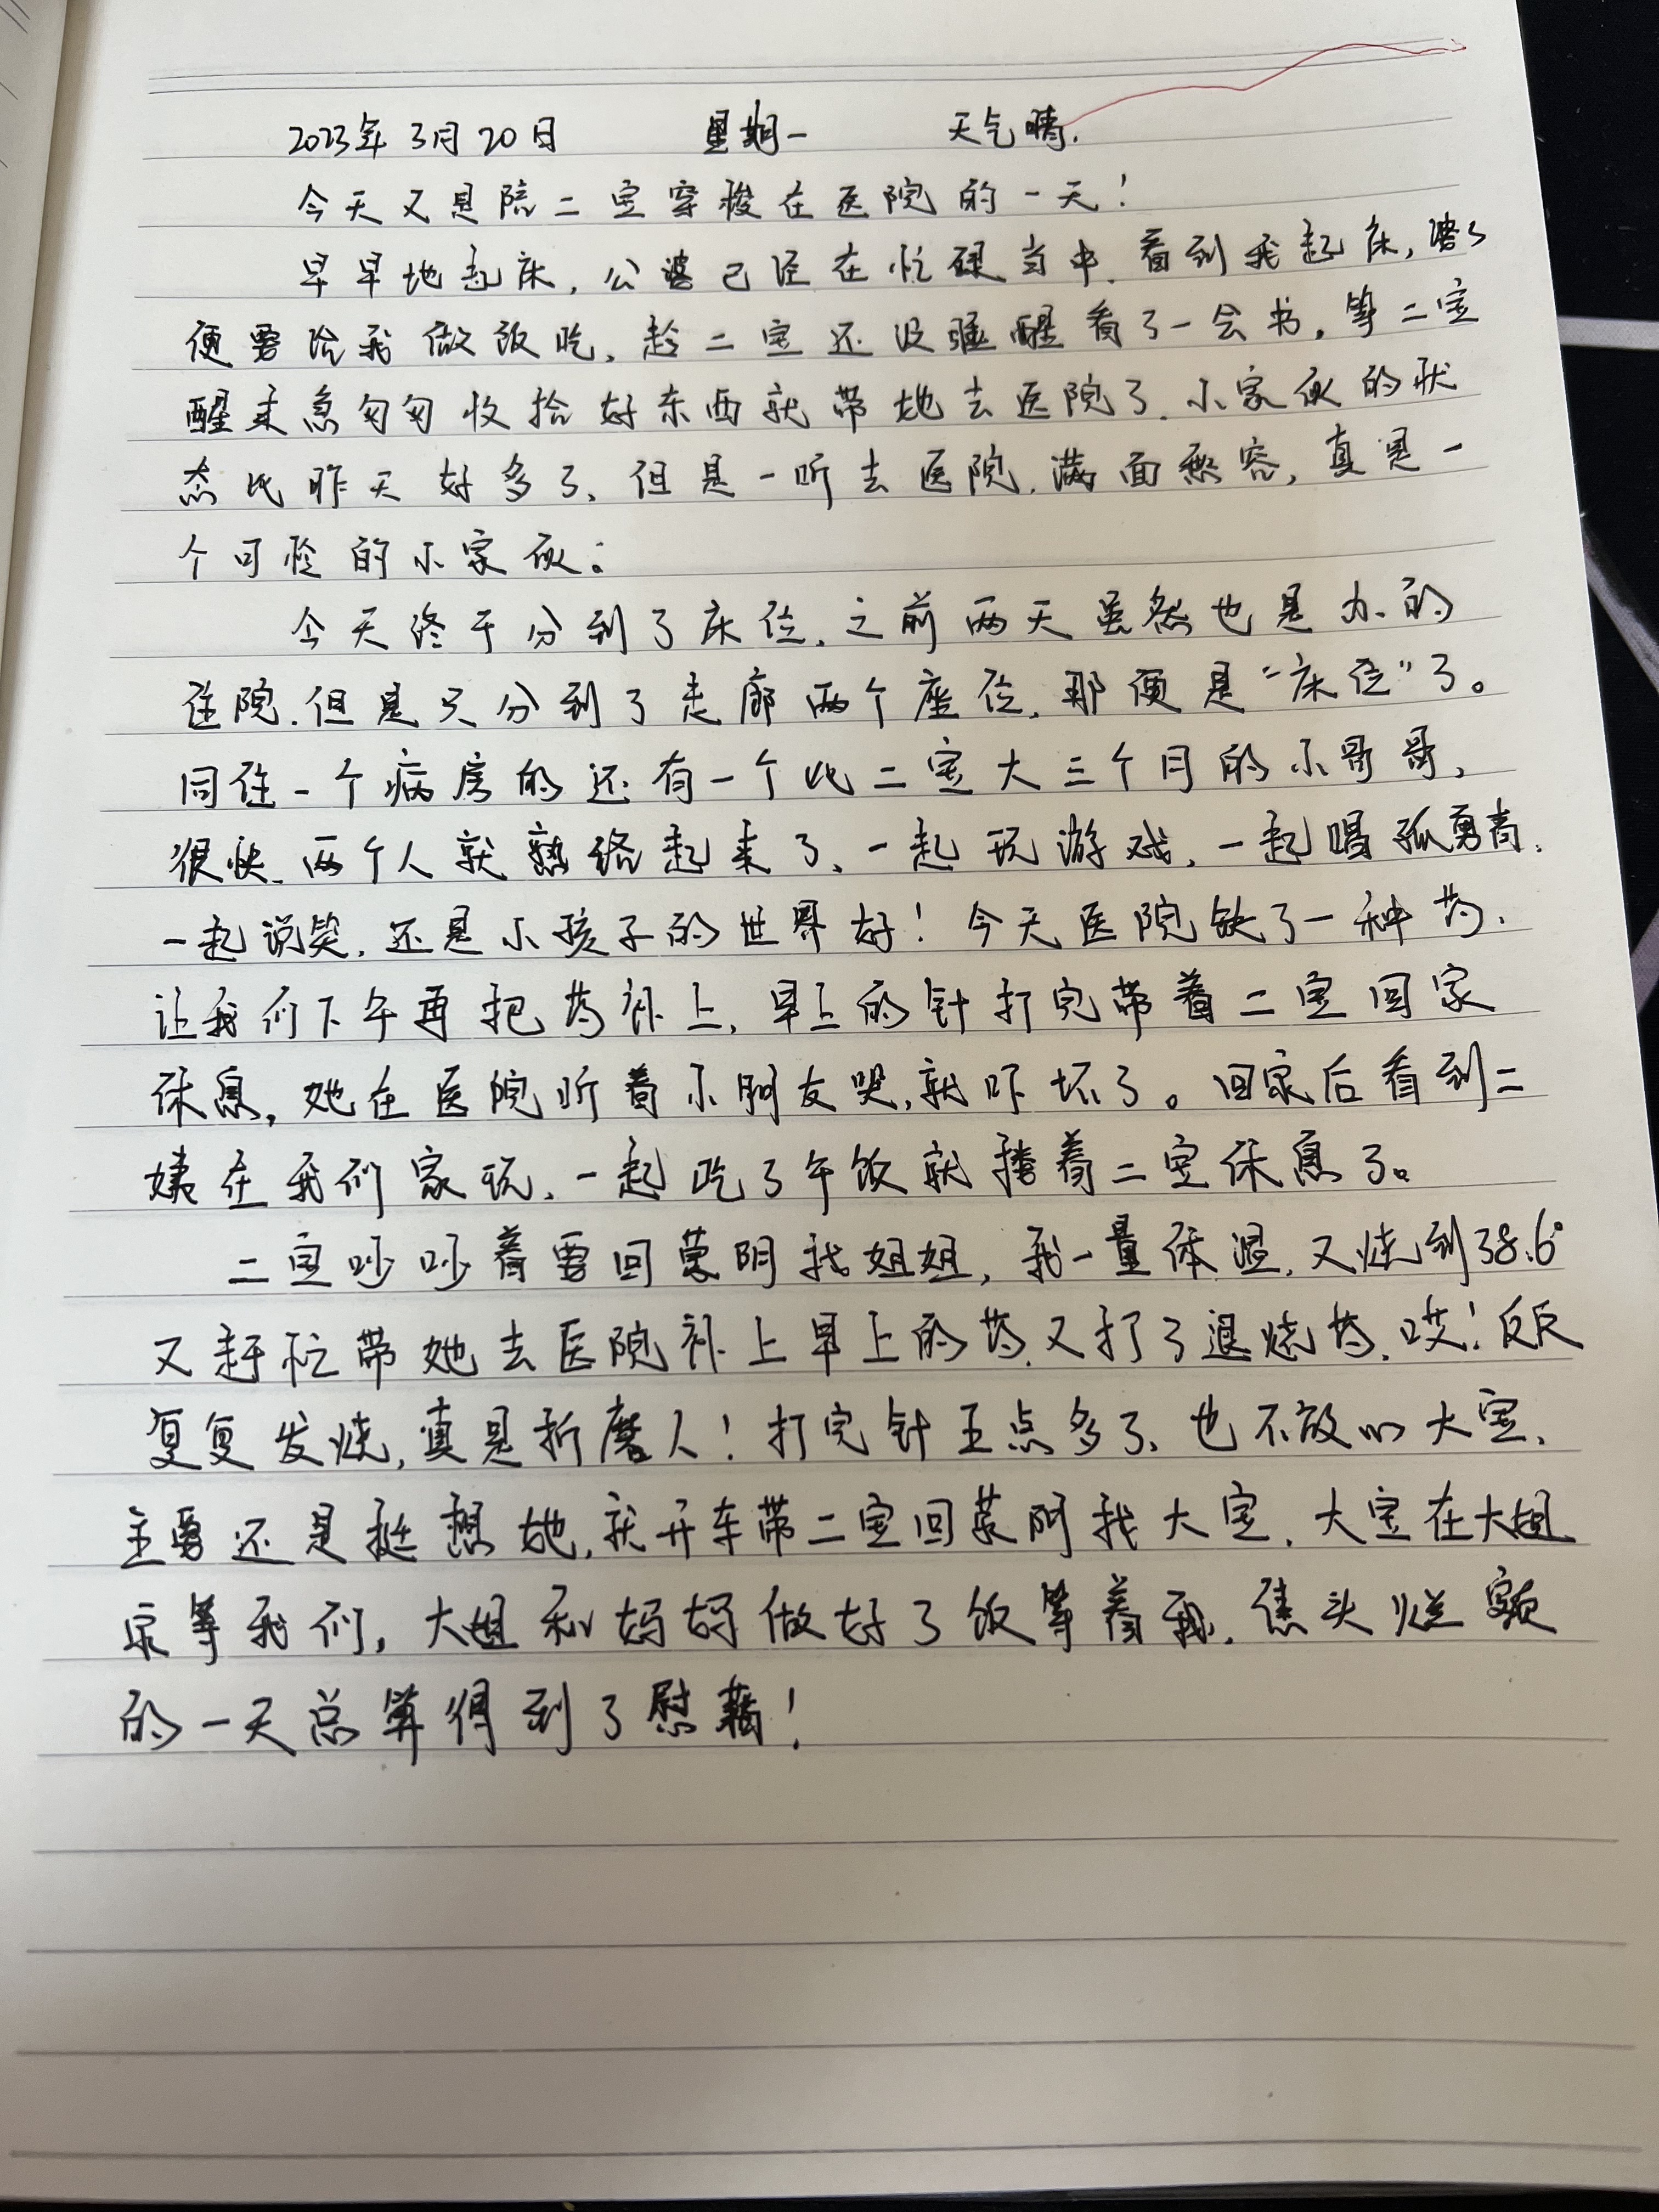 2023年3月20日 星期一 天气晴.
今天又是陪二宝穿梭在医院的一天！
早早地起床，公婆已经在忙碌当中，看到我起床，婆婆
便要给我做饭吃，趁二宝还没睡醒看了一会书，等二宝
醒来急匆匆收拾好东西就带她去医院了，小家伙的状
态比昨天好多了，但是一听去医院，满面愁容，真是一
个可怜的小家伙。
今天终于分到了床位，之前两天虽然也是办的
住院，但是只分到了走廊两个座位，那便是“床位”了。
同住一个病房的还有一个比二宝大三个月的小哥哥，
很快，两个人就熟络起来了，一起玩游戏，一起唱孤勇者，
一起说笑，还是小孩子的世界好！今天医院缺了一种药，
让我们下午再把药补上，早上的针打完带着二宝回家
休息，她在医院听着小朋友哭，就吓坏了。回家后看到二
姨在我们家玩，一起吃了午饭就搂着二宝休息了。
二宝吵吵着要回蒙阴找姐姐，我一量体温，又烧到38.6°
又赶忙带她去医院补上早上的药，又打了退烧药，哎！反反
复复发烧，真是折磨人！打完针五点多了，也不放心大宝，
主要还是挺想她，就开车带二宝回蒙阴找大宝，大宝在大姐
家等我们，大姐和妈妈做好了饭等着我，焦头烂额
的一天总算得到了慰藉！